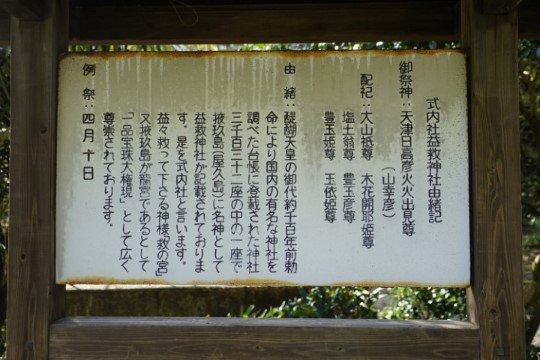 式内社益救神社由緒記
御祭神：天津日高彦火火出見尊
（山幸彦）
配祀：大山祗尊　木花開耶姫尊
塩土翁尊　豊玉彦尊
豊玉姫尊　玉依姫尊
由緒：醍醐天皇の御代約千百年前勅
命により国内の有名な神社を
調べた台帳に登載された神社
三千百三十二座の中の一座で
掖玖島（屋久島）に名神として
益救神社が記載されておりま
す。是を式内社と言います。
益々救って下さる神様「救の宮」
又掖玖島が龍宮であるとして
「一品宝珠大権現」として広く
尊崇されております。
例祭：四月十日